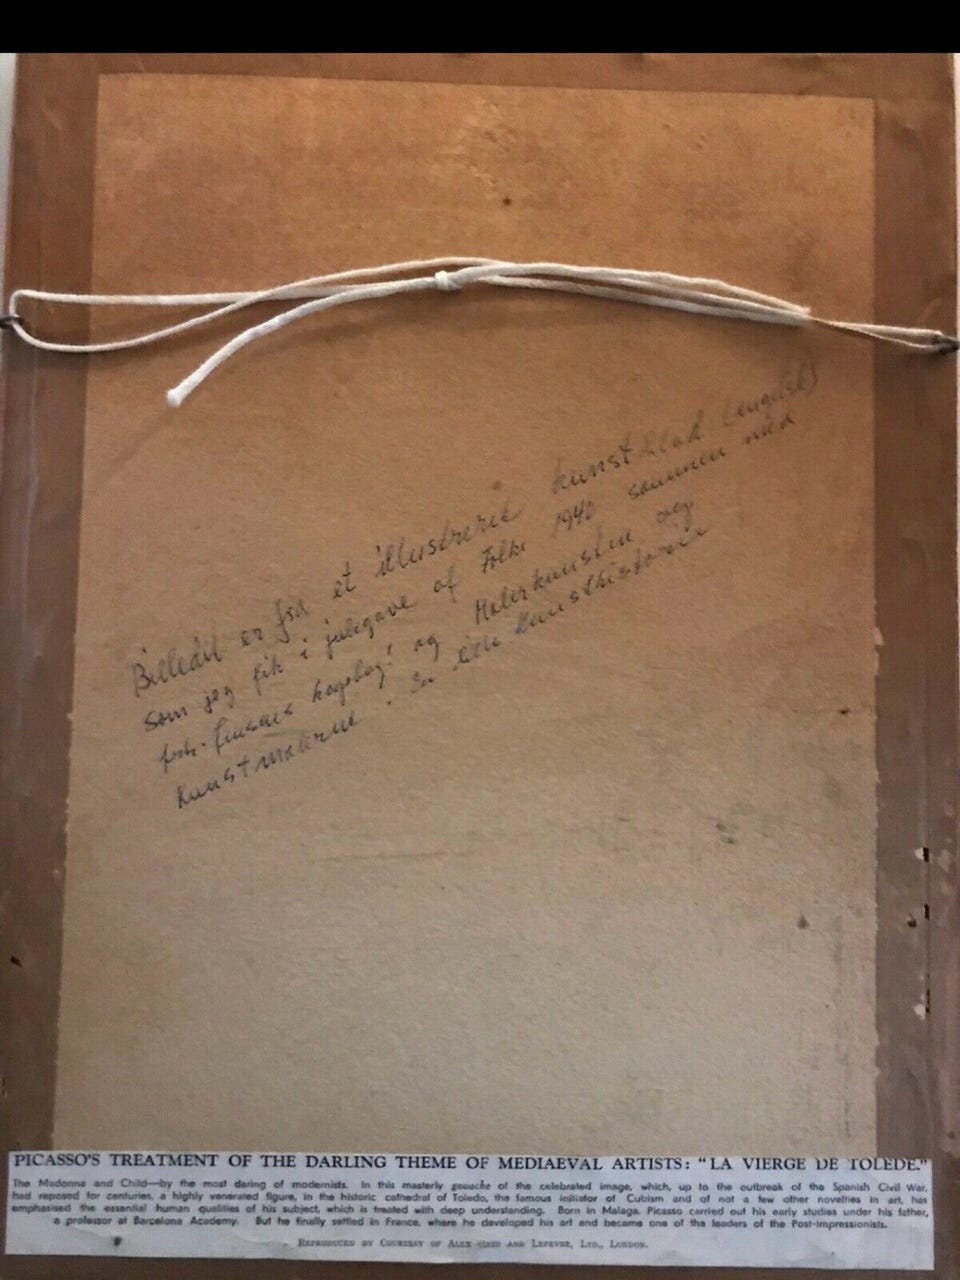 Billedit er fra et illustreret kunstblad (engelsk)
som jeg fik i julegave af Folke 1940 sammen med
kogebog! og Malerkunsten og
Kunstmalerne. En lille Kunsthistorie
PICASSO'S TREATMENT OF THE DARLING THEME OF MEDIAEVAL ARTISTS: "LA VIERGE DE TOLEDE."
The Madonna and Child—by the most daring of modernists. In this masterly gouache of the celebrated image, which, up to the outbreak of the Spanish Civil War,
had reposed for centuries, a highly venerated figure, in the historic cathedral of Toledo, the famous initiator of Cubism and of not a few other novelties in art, has
emphasised the essential human qualities of his subject, which is treated with deep understanding. Born in Malaga, Picasso carried out his early studies under his father,
a professor at Barcelona Academy. But he finally settled in France, where he developed his art and became one of the leaders of the Post-Impressionists.
REPRODUCED BY COURTESY OF ALEX REID AND LEFEVRE, LTD., LONDON.